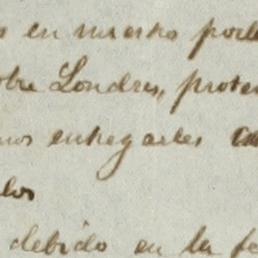 s en nuestro pode
obre Londres, protes
mos entregarles ca
los
debido en la fe